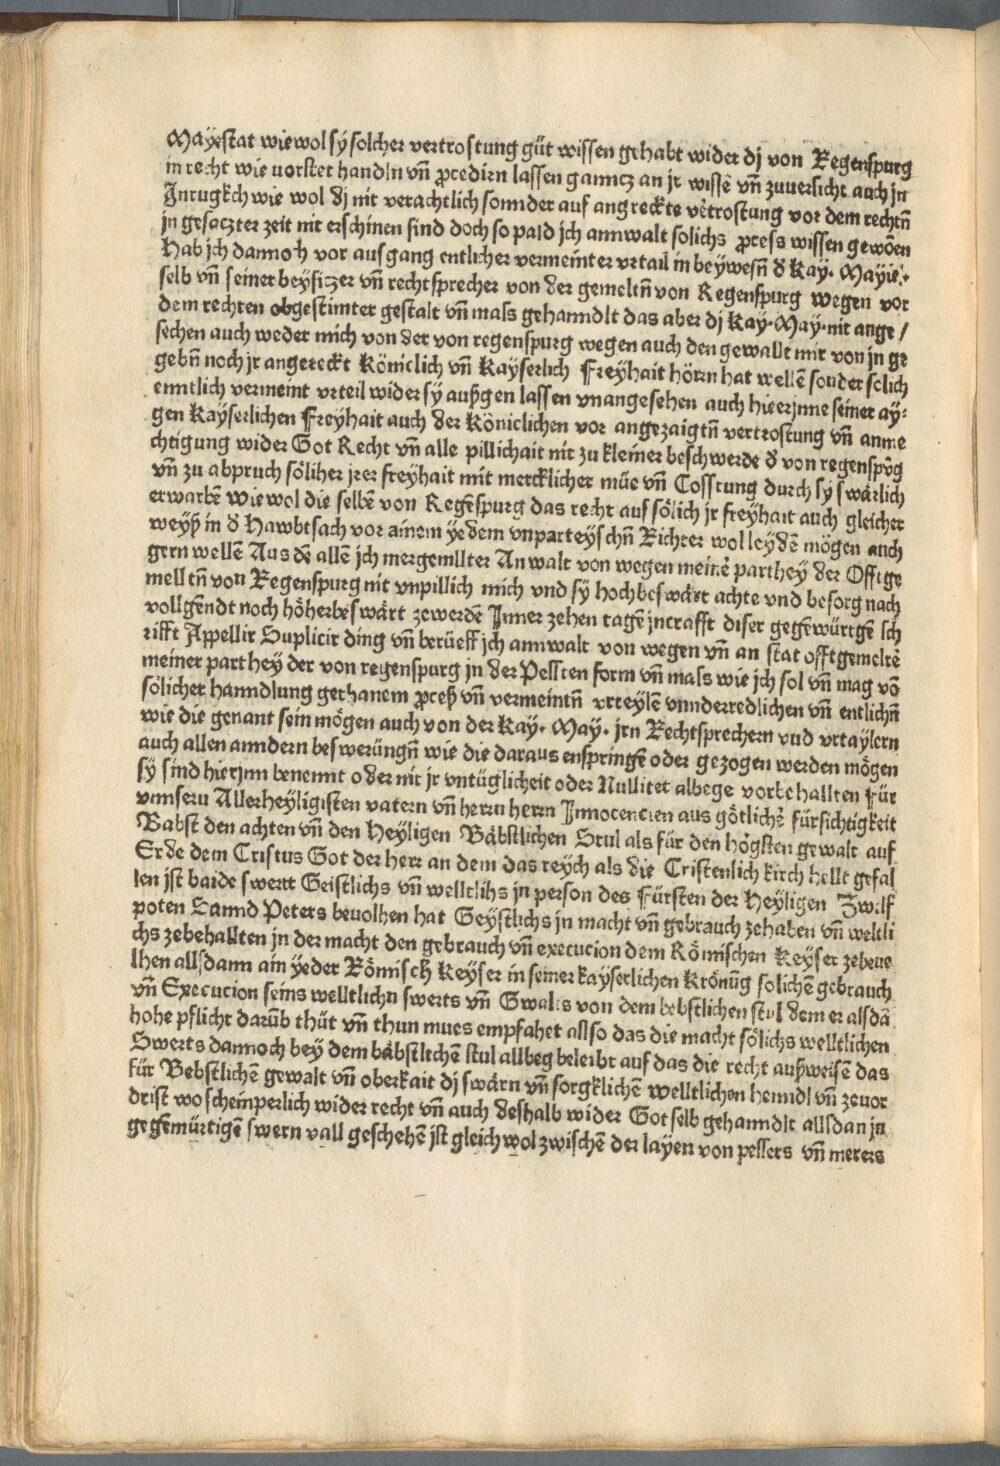 Mayestat wiewol sy solcher vertrostung güt wissen gehabt wider dj von Regenspurg
in recht wie vorstet handln vn̄ ꝓcedirn lassen ganncz an jr wissē vn̄ zuversicht auch jn
Jnrugkch wie wol dj nit verachtlich sonnder auf angreckte vėrtrostung vor dem rechtn̄
jn gesaczter zeit nit erschinen sind doch so pald jch annwalt solichs ꝓcess wissen gewōen
Hab jch dannoh vor ausgang entlicher vermeinter vrtail in beywesn̄ d̕ Kay. Mayū.
selb vn̄ seiner beysitzer vn̄ rechtsprecher von der gemeltn̄ von Regenspurg wegen vor
dem rechten obgestimter gestalt vn̄ mass gehanndlt das aber dj Kay. May. nit ange/
sechen auch weder mich von der von regenspurg wegen auch den gewallt mir von jn ge
gebn̄ noch jr angereckt Köniclich vn̄ Kayserlich Freyhait hörn hat wellē sonder solich
enntlich vermeint vrteil wider sy außgen lassen vnangesehen auch hierjnne seiner ay⸗
gen Kayserlichen Freyhait auch der Königlichen vor angezaigtn̄ vertrostung vn̄ anme
chtigung wider Got Recht vn̄ alle pillichait nit zu kleiner beschwerde d̕ von regenspūg
vn̄ zu abpruch söliher jrer freyhait mit mercklicher müe vn̄ Cosstung durch sy swärlich
erwarbē wiewol die selbē von Regēspurg das recht auf sölich jr freyhait auch gleicher
weyß in d̕ Hawbtsach vor ainem yedem vnparteyschn̄ Richter wol leydē mögen auch
gern wellē Aus dē allē jch mergemllter Anwalt von wegen meinė parthey der Offtge
melltn̄ von Regenspurg nit vnpillich mich vnd sy hochbeswärt achte vnd besorg nach
vollgendt noch höherbeswärt zewerdē Jnner zehen tagē jncrafft diser gegēwürtgē sch
rifft Appellir Suplicir ding vn̄ berüeff jch annwalt von wegen vn̄ an stat offtgemeltē
meiner parthey der von regenspurg jn der Pessten form vn̄ mass wie jch sol vn̄ mag vō
sölicher hanndlung gethanem ꝓceß vn̄ vermeintn̄ vrteylē vnnderredlichen vn̄ entlichn̄
wie die genant sein mögen auch von der Kay. May. jrn Rechtsprechern vnd vrtaylern
auch allen anndern beswerüngn̄ wie die daraus enspringē oder gezogen werden mögen
sy sind hierjnn benennt oder nit jr vntüglicheit oder Nullitet albege vorbehallten Für
vnnsern Allerheyligisten vatern vn̄ herrn herrn Jnnocencien aus götlichė fürsichtigkeit
Babst den achten vn̄ den Heyligen Bäbstlichen Stul als für den högsten gewalt auf
Erde dem Cristus Got der herr an dem das reych als die Cristenlich kirch hellt gefal
len jst baide swert Geistlichs vn̄ welltlihs jn person des Fürsten der Heyligen Zwilf
poten Sannd Peters bevolhen hat Geystlichs jn macht vn̄ gebrauch zehaben vn̄ weltli
chs zebehallten jn der macht den gebrauch vn̄ execucion dem Römischen Keyser zebeue
lhen allsdann ain yeder Römisch Keyser in seiner kayserlichen Krönūg solichē gebrauch
vn̄ Execucion seins welltlichn swerts vn̄ Gwalts von dem bebstlichen stul dem er alsdā
hohe pflicht darūb thüt vn̄ thun mues empfahet allso das die macht sölichs welltlichen
Swerts dannoch bey dem bäbstlichē stul allbeg beleibt auf das die recht außweisē das
für Bebstlichē gewalt vn̄ oberkait dj swärn vn̄ sorgklichē welltlichen henndl vn̄ zevor
drist wo scheinperlich wider recht vn̄ auch deshalb wider Got selb gehanndlt allsdan jn
gegēmürtigē swern vall geschehē jst gleich wol zwischē der layen von pessers vn̄ merers